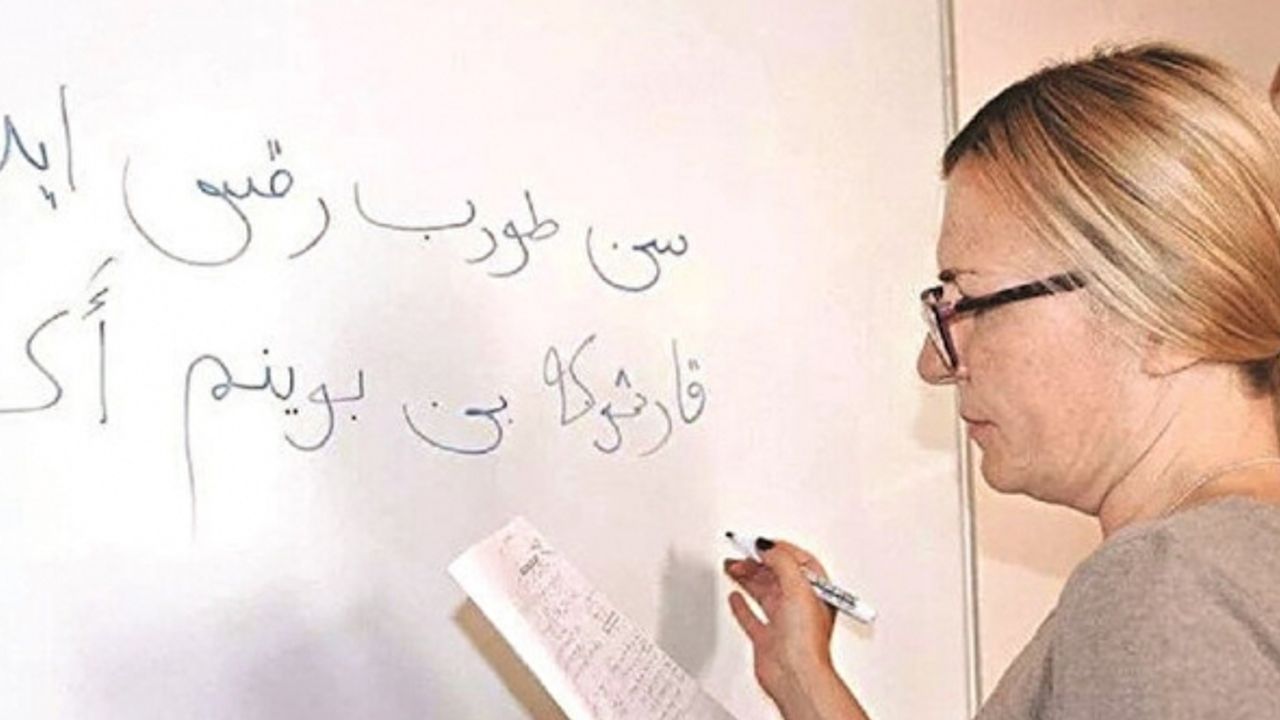 سن طورب رقيق ايد
قارشوكه بن بوينم أك